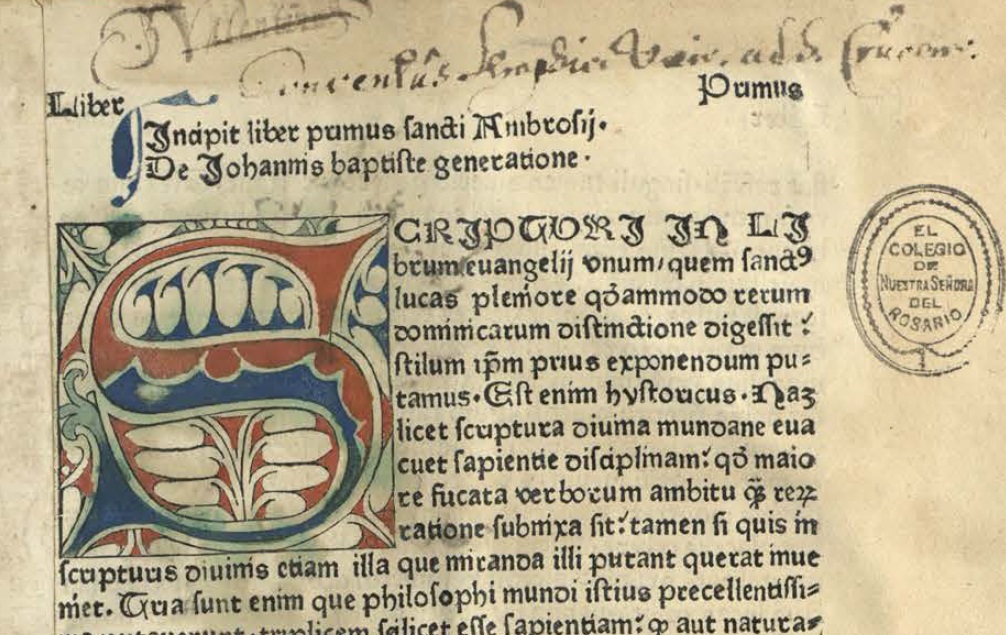 Liber Primus
Incipit liber primus sancti Ambrosij.
De Johannis baptiste generatione.
SCRIPTURI IN LI
brum euangelij vnum/quem sanctꝰ
lucas pleniore qđammodo rerum
dominicarum distinctione digessit :
stilum ip̄m prius exponendum pu=
tamus. Est enim hystoricus. Naꝫ
licet scriptura diuina mundane eua
cuet sapientie disciplinam: qđ maio
re fucata verborum ambitu q̄ꝫ reꝝ
ratione subnixa sit: tamen si quis in
scripturis diuinis etiam illa que miranda illi putant querat inue
niet. Tria sunt enim que philosophi mundi istius precellentissi=
triplicem scilicet esse sapientiam: ꝙ aut natura=
EL
COLEGIO
DE
NUESTRA SEÑORA
DEL
ROSARIO